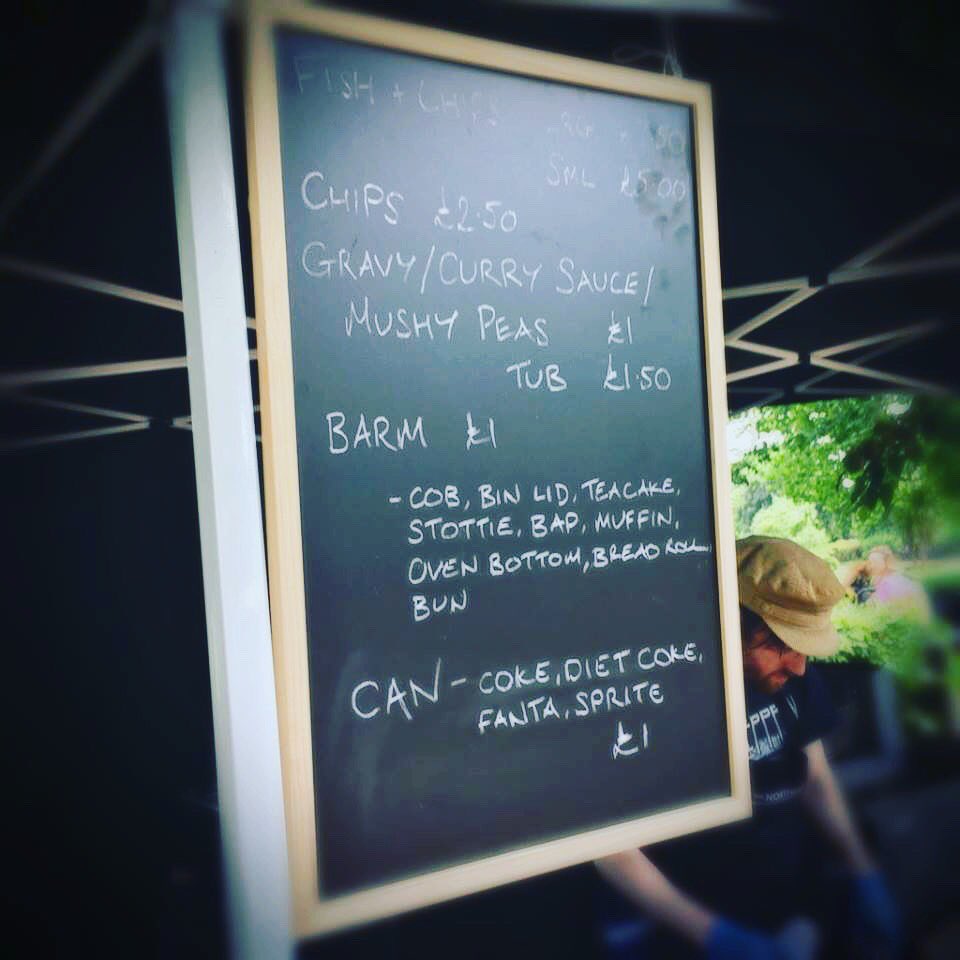 FISH + CHIPS
SML £5.00
CHIPS £2.50
GRAVY/CURRY SAUCE/
MUSHY PEAS £1
TUB £1.50
BARM £1
- COB, BIN LID, TEACAKE,
STOTTIE, BAP, MUFFIN,
OVEN BOTTOM, BREAD ROLL,
BUN
CAN - COKE, DIET COKE,
FANTA, SPRITE
£1